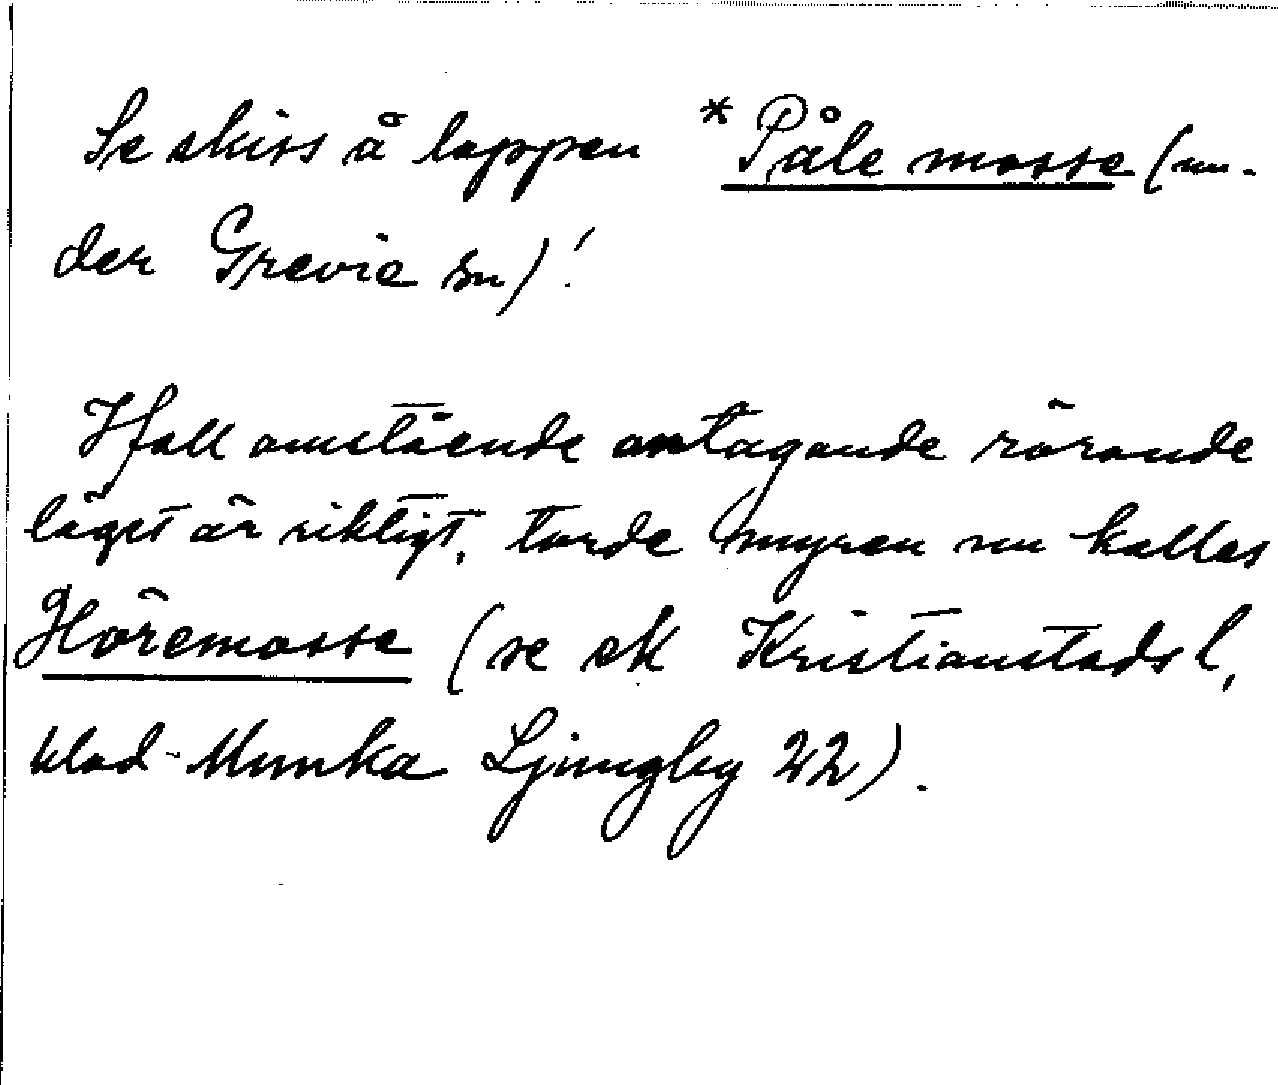 Se skiss å lappen *Påle mosse (un-
der Grevie sn)!
Ifall omstående antagande rörande
läget är riktigt, torde myren nu kallas
Höremosse (se ek Kristianstads l,
blad Munka Ljungby 22).